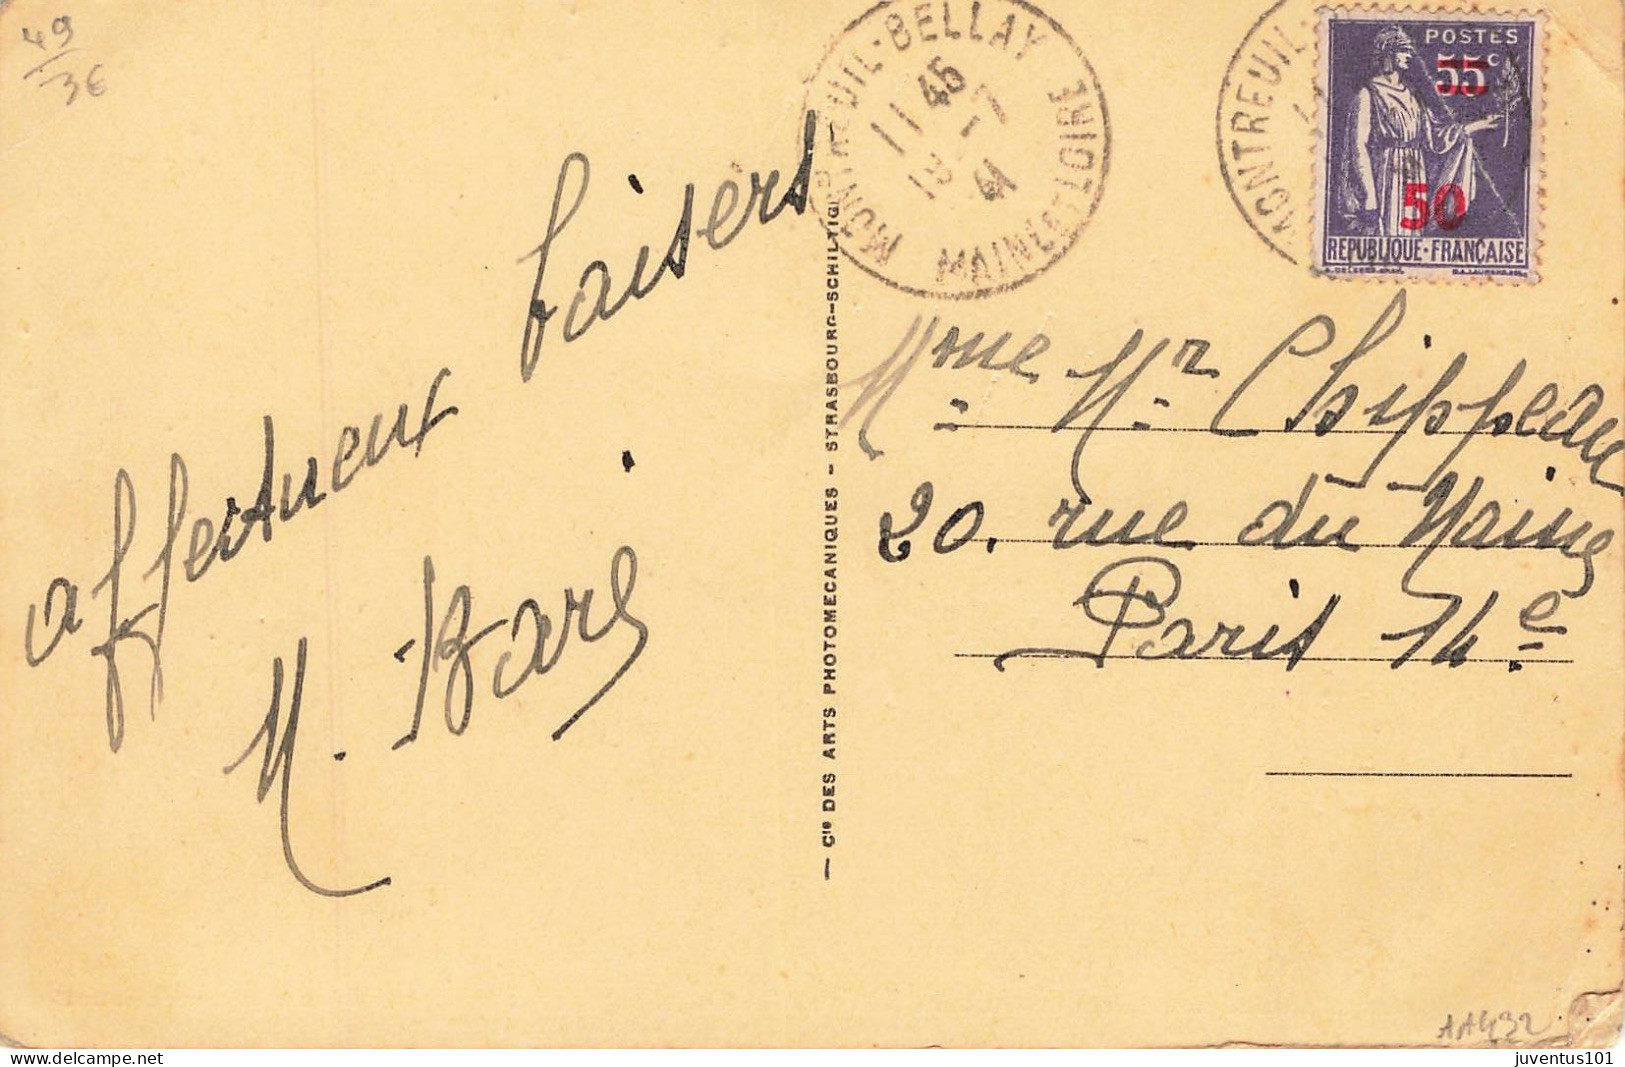 49
3€
MONTREUIL-BELLAY
11 45
13 - 7
41
MAINE ET LOIRE
MONTREUIL-
POSTES
55c
50
REPUBLIQUE-FRANÇAISE
affectueux baisers
Mme Mr Chippeau
20. rue du Maine
Paris 14e
— Cie DES ARTS PHOTOMECANIQUES - STRASBOURG-SCHILTIG
AA432
juventus101